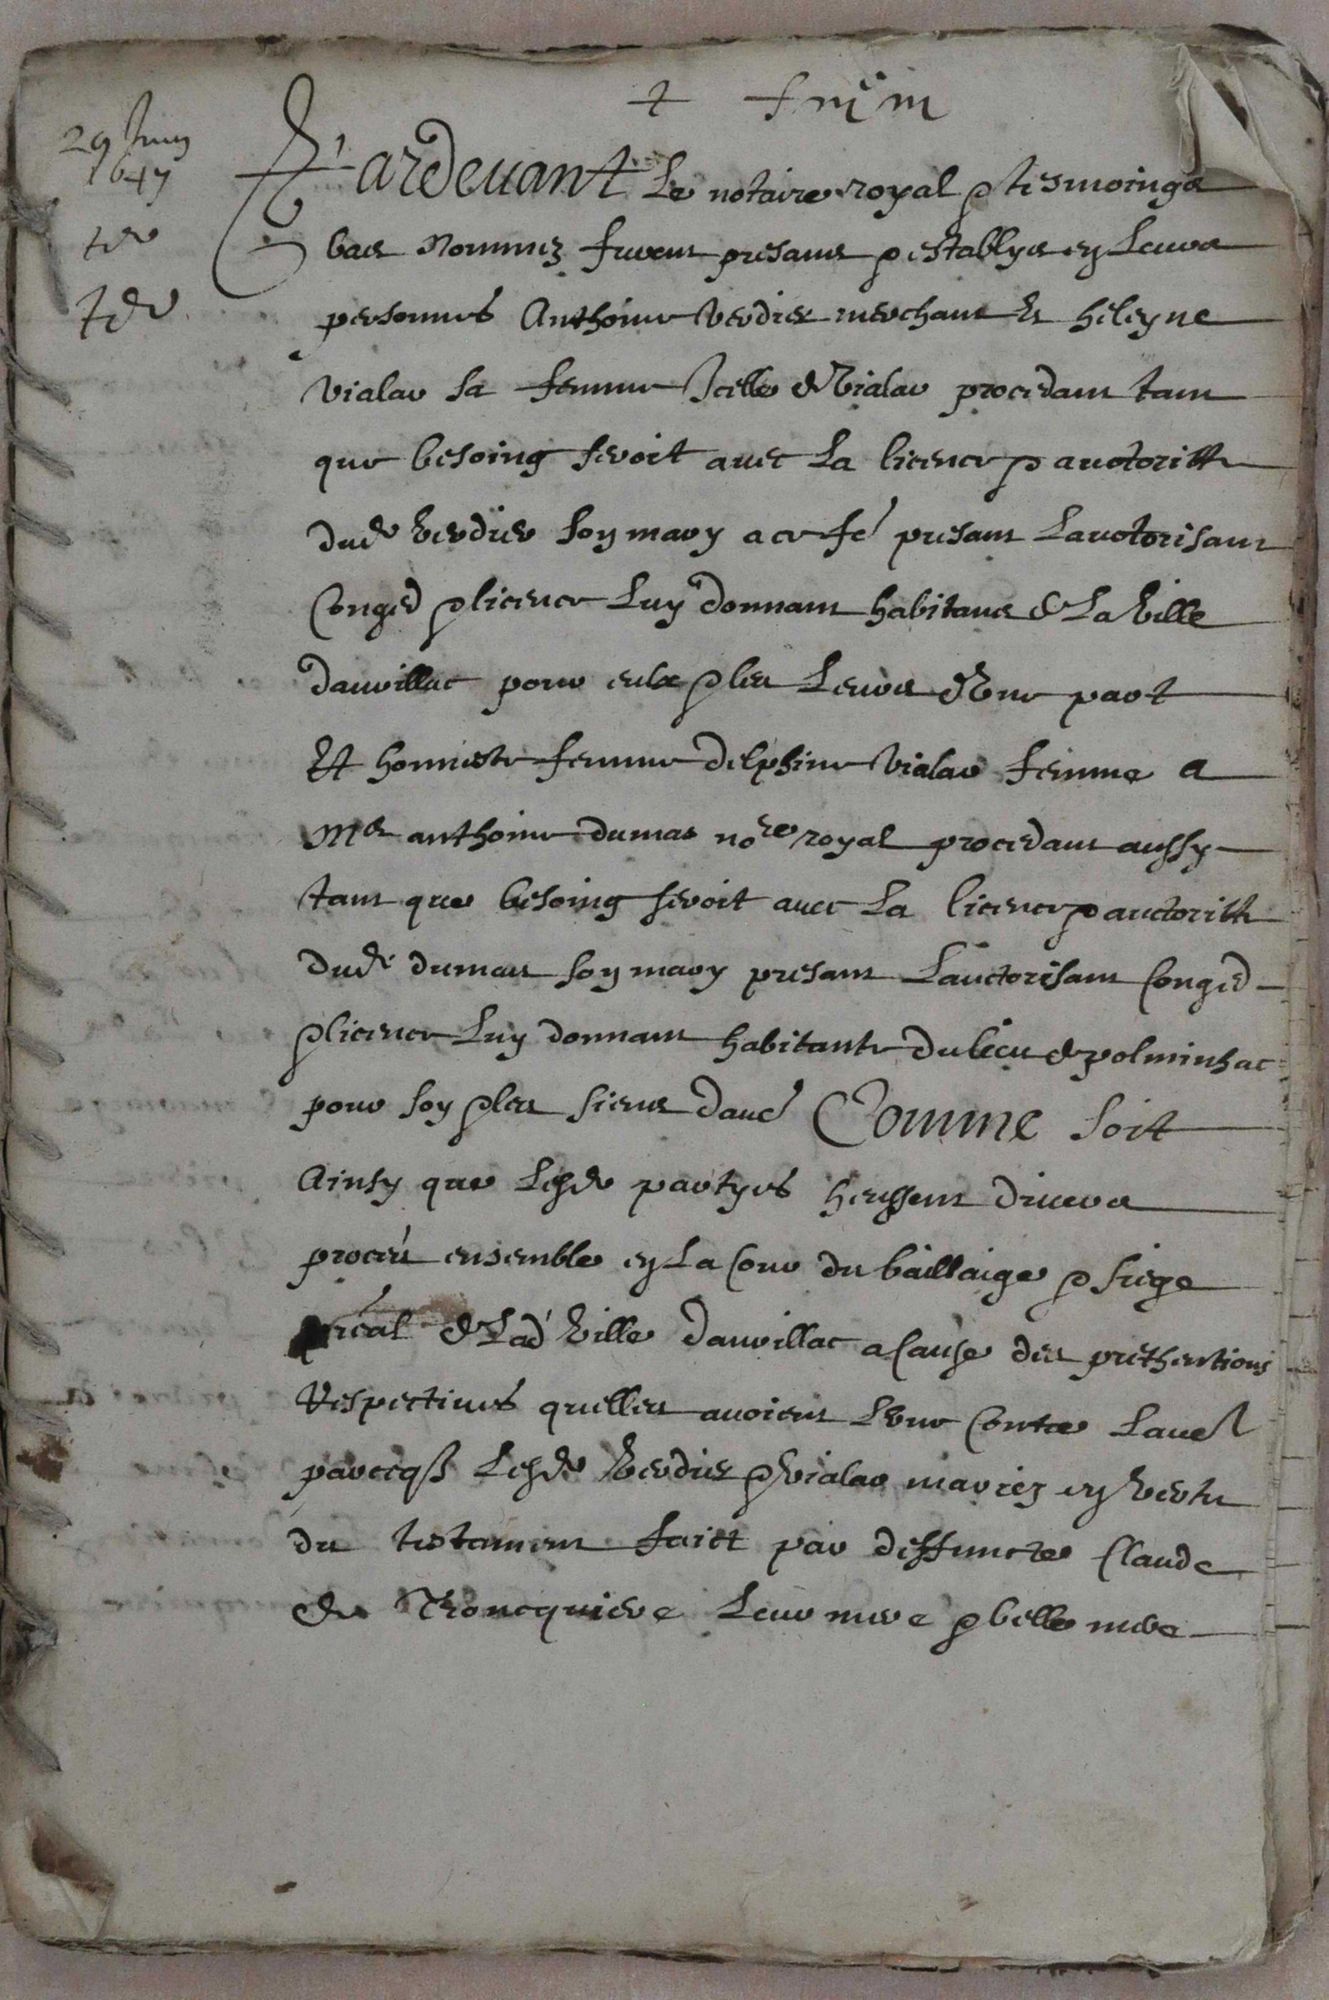 29 Juin
1647
Pardevant Le notaire royal & tesmoings
bas Nommez furent presans & establys en Leurs
personnes Anthoine Verdier merchant Et heleyne
Vialar sa femme Icelle de Vialar procedant tant
que besoing seroit avec La licence & auctoritte
dud verdier son mary a ce fé presant Lauctorisant
Conged & licence Luy donnant habitans de La Ville
daurillac pour eulx & les Leurs dune part
Et honneste femme delphine Vialar femme a
Me anthoine dumas nore royal procedant aussy
tant que besoing seroit avec La licence & auctoritte
dud dumas son mary presant Lauctorisant Conged
& licence Luy donnant habitante du lieu de polminhac
pour soy & les siens daué Comme soit
Ainsy que Lesd partyes heussent divers
proces ensemble en La Cour du baillaige & siege
pnéal de Lad Ville daurillac a Cause des prethentions
Respectives quelles avoient Lune Contre Laue
parce q Lesd Verdier & vialar mariez en vertu
du testament faict par deffuncte Claude
de Troncquiere Leur mere & belle mere